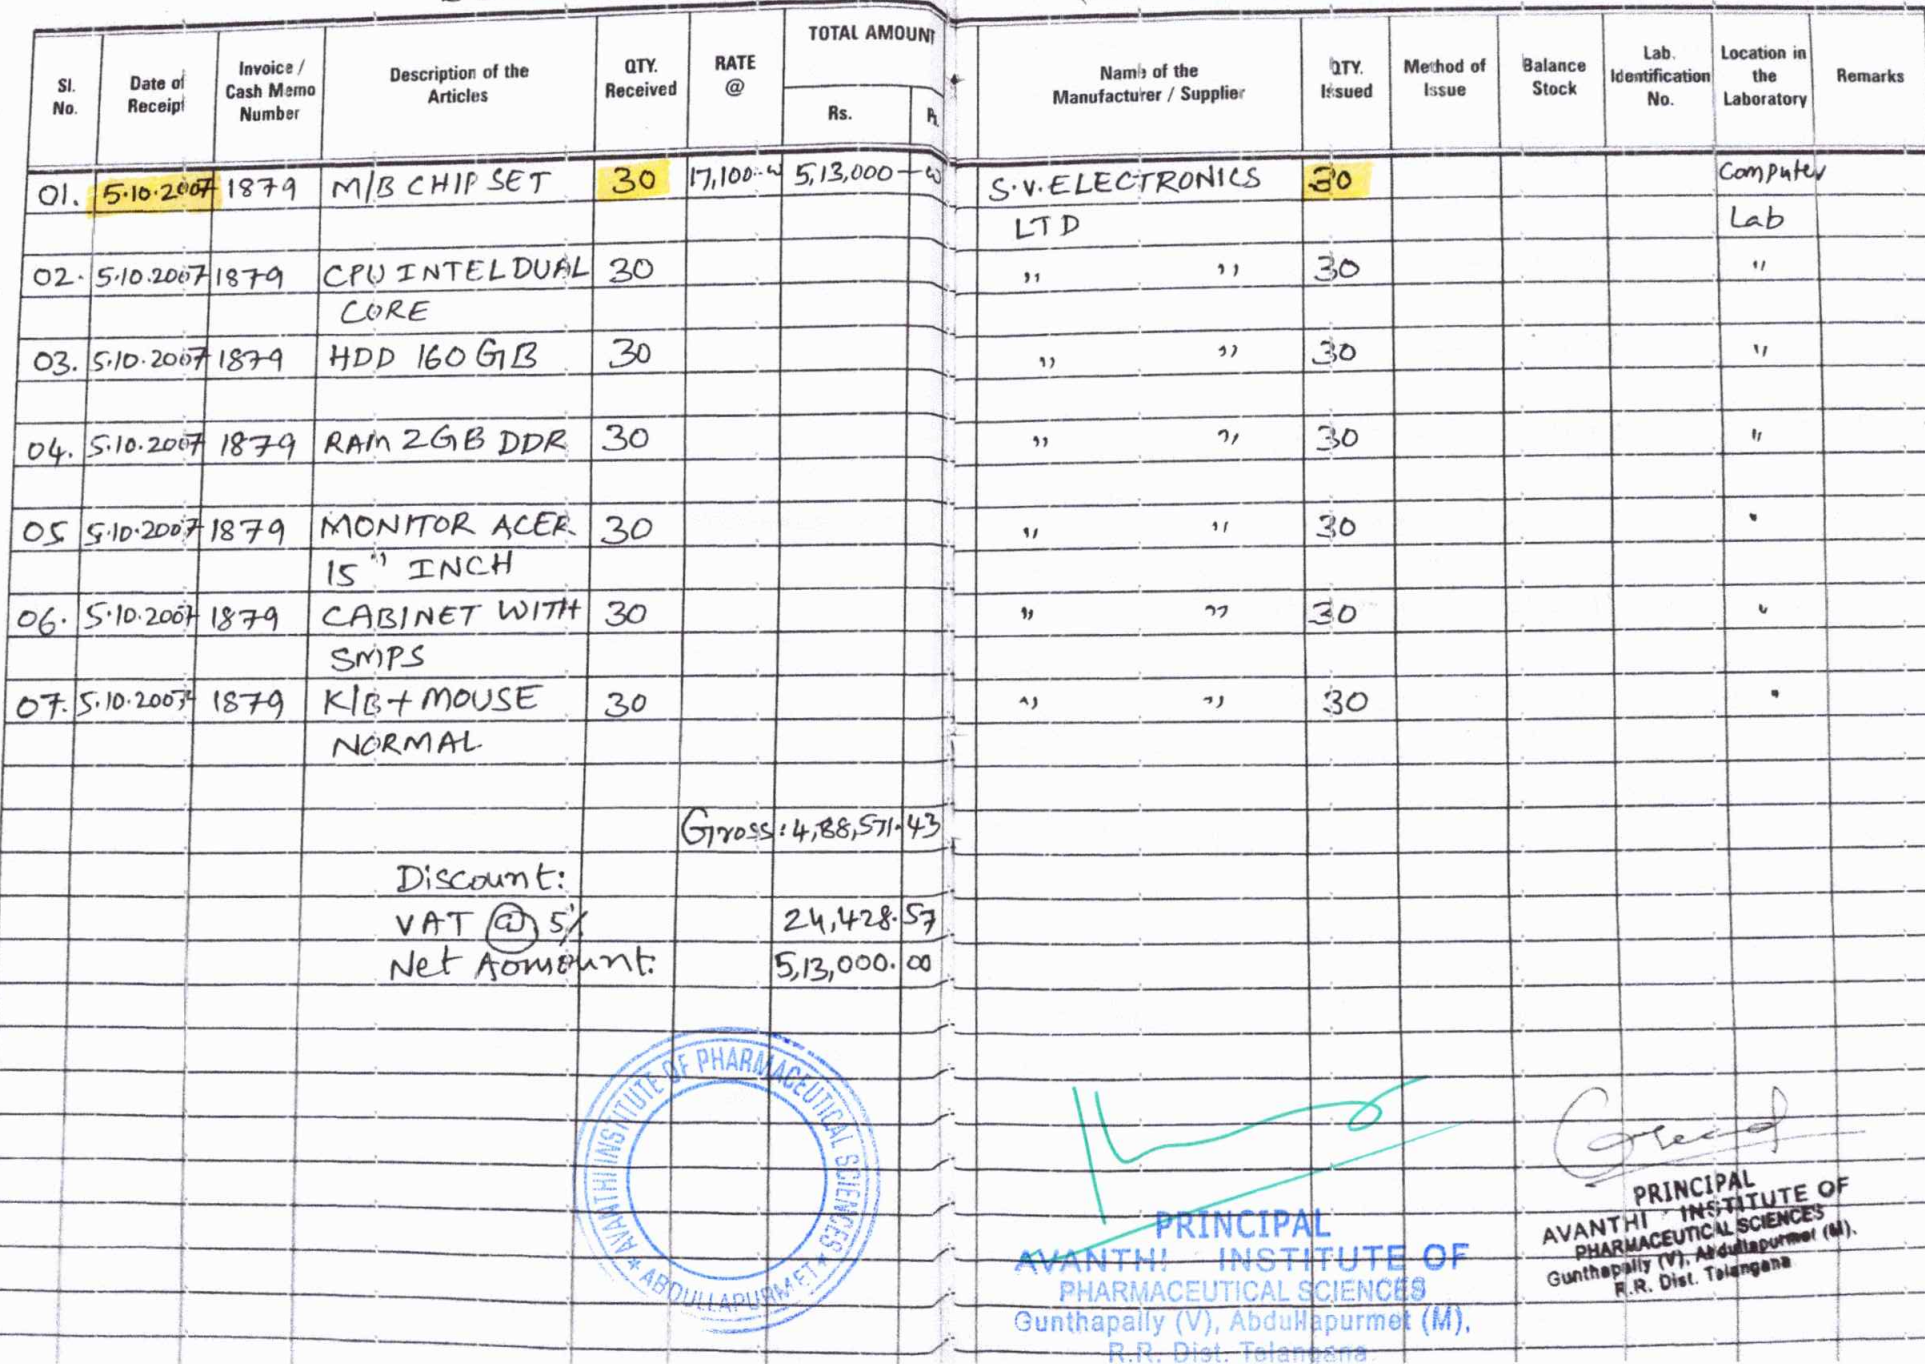 Sl. No. Date of Receipt Invoice / Cash Memo Number Description of the Articles QTY. Received RATE @ TOTAL AMOUNT Rs. P. Name of the Manufacturer / Supplier QTY. Issued Method of Issue Balance Stock Lab. Identification No. Location in the Laboratory Remarks
01. 5.10.2007 1879 M/B CHIP SET 30 17,100 5,13,000 S.V. ELECTRONICS 30 Computer
LTD Lab
02. 5.10.2007 1879 CPU INTEL DUAL 30 ,, ,, 30 ,,
CORE
03. 5.10.2007 1879 HDD 160 GB 30 ,, ,, 30 ,,
04. 5.10.2007 1879 RAM 2GB DDR 30 ,, ,, 30 ,,
05 5.10.2007 1879 MONITOR ACER 30 ,, ,, 30 "
15" INCH
06. 5.10.2007 1879 CABINET WITH 30 ,, ,, 30 "
SMPS
07. 5.10.2007 1879 K/B + MOUSE 30 ,, ,, 30 "
NORMAL
Gross: 4,88,571.43
Discount:
VAT @ 5% 24,428.57
Net Aomount: 5,13,000.00
AVANTHI INSTITUTE OF PHARMACEUTICAL SCIENCES
★ ABDULLAPURMET ★
PRINCIPAL
AVANTHI INSTITUTE OF
PHARMACEUTICAL SCIENCES
Gunthapally (V), Abdullapurmet (M),
R.R. Dist. Telangana
PRINCIPAL
AVANTHI INSTITUTE OF
PHARMACEUTICAL SCIENCES
Gunthapally (V), Abdullapurmet (M),
R.R. Dist. Telangana